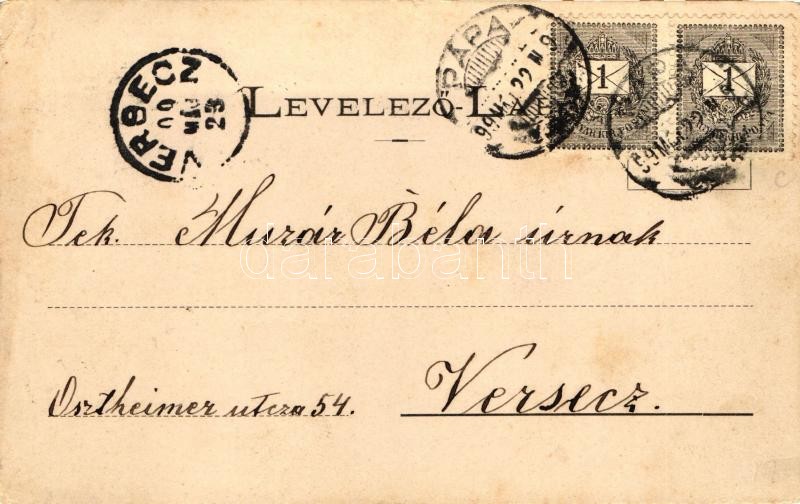 VERSECZ
LEVELEZŐ-L
PÁPA
1 1
Tek. Muzár Béla úrnak
darabanth
Osztheimer utcza 54.
Versecz.